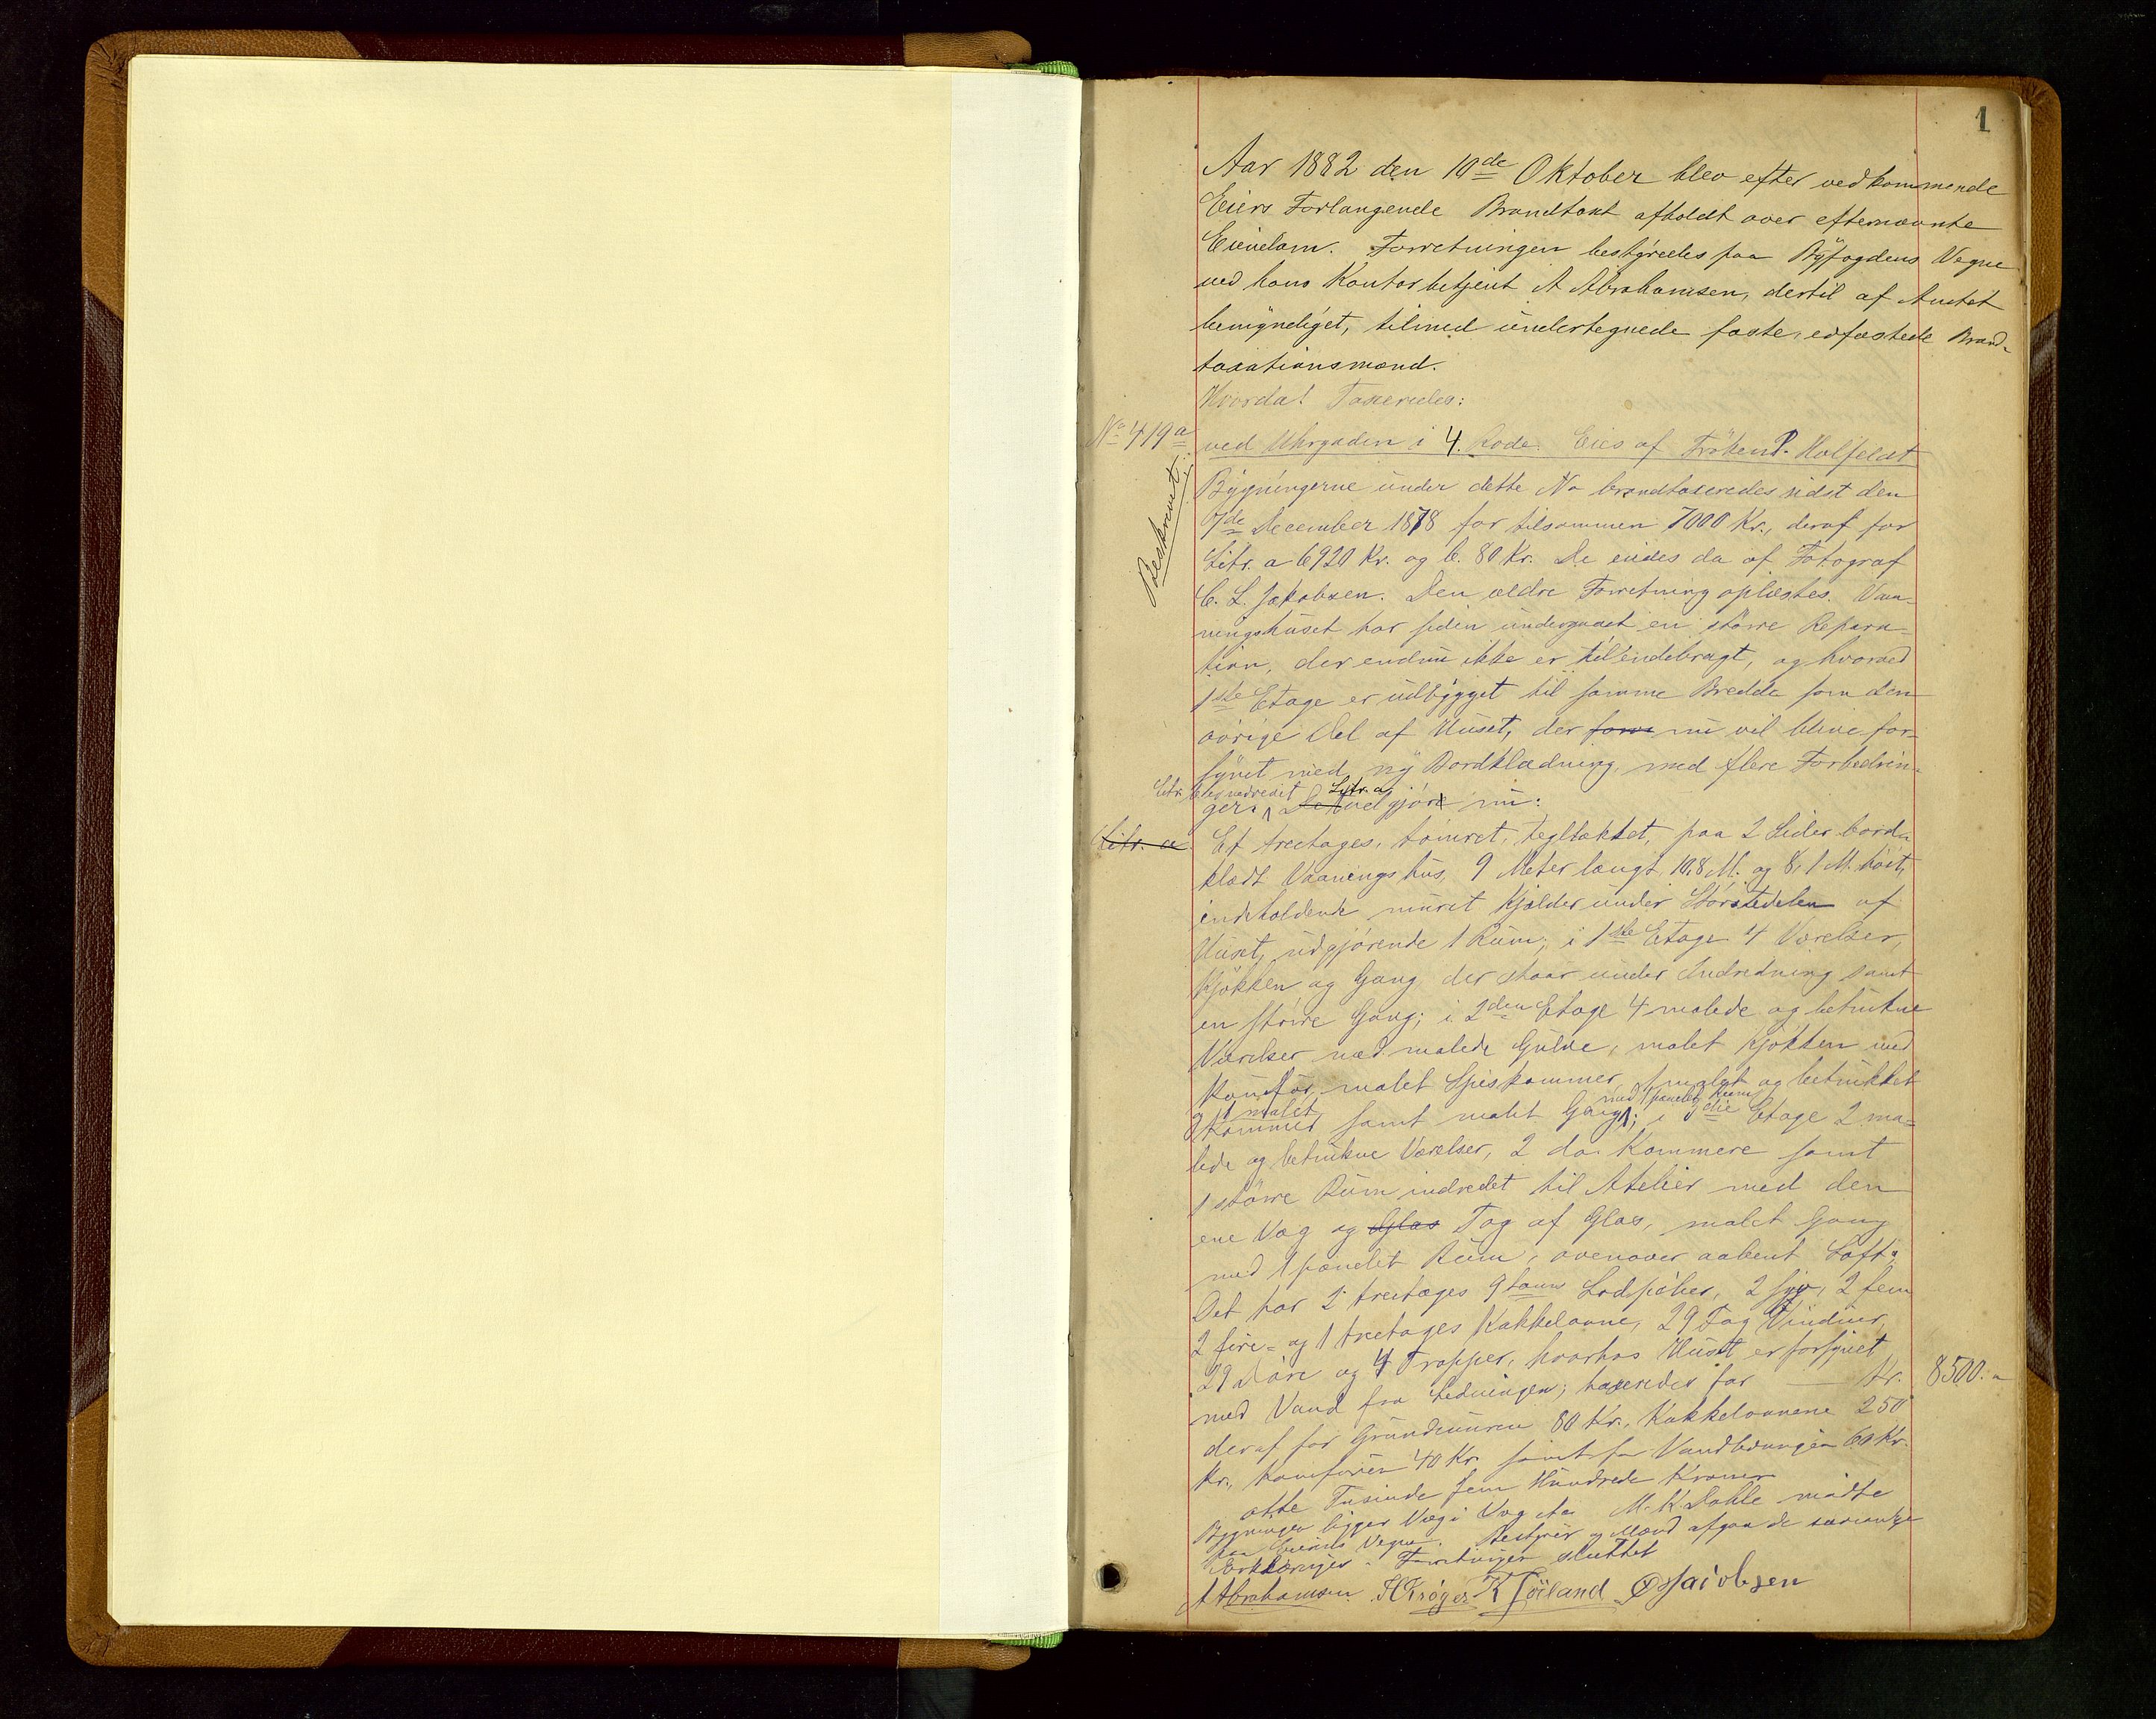 1
Aar 1882 den 10de Oktober blev efter vedkommende
Eiers Forlangende Brandtaxt afholdt over efternævnte
Eiendom. Forretningen bestyredes paa Byfogdens Vegne
ved hans Kontorbetjent A Abrahamsen, dertil af Amtet
bemyndiget, tilmed undertegnede faste, edfæstede Brand-
taxationsmænd.
Hvorda! Taxeredes:
No 419a ved Uhrgaden i 4. Rode. Eies af Frøken P. Halfeldt
Beskrevet
Bygningerne under dette No brandtaxeredes sidst den
7de December 1878 for tilsammen 7000 Kr., deraf for
Litr. a 6920 Kr. og b. 80 Kr. De eiedes da af Fotograf
C. L. Jakobsen. Den ældre Forretning oplæstes. Vaa-
ningshuset har siden undergaaet en større Repara-
tion, der endnu ikke er tilendebragt, og hvorved
1ste Etage er udbygget til samme Bredde som den
øvrige Del af Huset, der nu vil blive for-
synet med ny Bordklædning, med flere Forbedrin-
Litr. b er nedrevet Litr. a
ger. udgjør nu:
Litr. a. Et treetages, tømret, tegltækket, paa 2 Sider bord-
klædt Vaaningshus, 9 Meter langt, 10,8 M. og 8,1 M. høit,
indeholdende muret Kjælder under Størstedelen af
Huset, udgjørende 1 Rum; i 1ste Etage 4 Værelser,
Kjøkken og Gang der staar under Indredning samt
en større Gang; i 2den Etage 4 malede og betrukne
Værelser med malede Gulve, malet Kjøkken med
Komfur, malet Spiskammer, 1 malet og betrukket
1 malet med 1 panelet Rum
Kammer samt malet Gang; i 3die Etage 2 ma-
lede og betrukne Værelser, 2 do. Kammere samt
1 større Rum indredet til Atelier med den
ene Væg og Glas Tag af Glas, malet Gang
med 1 panelet Rum, ovenover aabent Loft.
Det har 2 treetages 9 toms Lodpiber, 2 syv, 2 fem
2 fire- og 1 treetages Kakkelovne, 29 Fag Vinduer,
29 Døre og 4 Trapper, hvorhos Huset er forsynet
med Vand fra Ledningen; taxeredes for Kr. 8500.-
deraf for Grundmuren 80 Kr., Kakkelovnene 250
Kr., Komfuren 40 Kr. samt for Vandledningen 60 Kr.
otte Tusinde fem Hundrede Kroner
Bygningen ligger Væg i Væg M. K. Dahle mødte
paa Eierens Vegne. Bestyrer og Mænd afgav de sædvanlige
Erklæringer. Forretningen sluttet
A Abrahamsen. H Krøger K Tøiland O Jacobsen